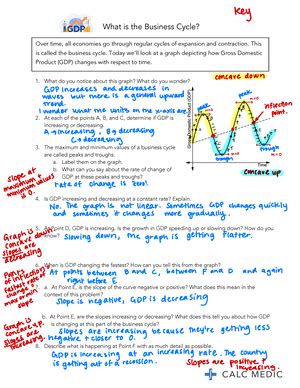 Key
GDP
What is the Business Cycle?
Over time, all economies go through regular cycles of expansion and contraction. This is
called the business cycle. Today we'll look at a graph depicting how Gross Domestic
Product (GDP) changes with respect to time.
concave down
1. What do you notice about this graph? What do you wonder?
GDP increases and decreases in
waves but there is a general upward
trend.
I wonder what the units on the graph are
2. At each of the points A, B, and C, determine if GDP is
increasing or decreasing.
A → increasing, B → decreasing
C → decreasing
3. The maximum and minimum values of a business cycle
are called peaks and troughs.
a. Label them on the graph.
b. What can you say about the rate of change of
GDP at these peaks and troughs?
rate of change is zero!
peak
peak
inflection
point
trough
trough
Time
concave up
slope at
maximum +
minimum values
is 0.
4. Is GDP increasing and decreasing at a constant rate? Explain.
No. The graph is not linear. Sometimes GDP changes quickly
and sometimes it changes more gradually.
Graph is
concave down,
slopes are
decreasing
5. At Point D, GDP is increasing. Is the growth in GDP speeding up or slowing down? How do you
Slowing down, the graph is getting flatter.
6. When is GDP changing the fastest? How can you tell this from the graph?
At points between B and C, between F and D and again
right before E
a. At Point E, is the slope of the curve negative or positive? What does this mean in the
context of this problem?
Slope is negative, GDP is decreasing
Graph is
concave up,
slopes are
increasing.
b. At Point E, are the slopes increasing or decreasing? What does this tell you about how GDP
is changing at this part of the business cycle?
Slopes are increasing because they're getting less
negative + closer to 0.
8. Describe what is happening at Point F with as much detail as possible.
GDP is increasing at an increasing rate. The country
is getting out of a recession.
slopes are positive +
increasing.
CALC MEDIC